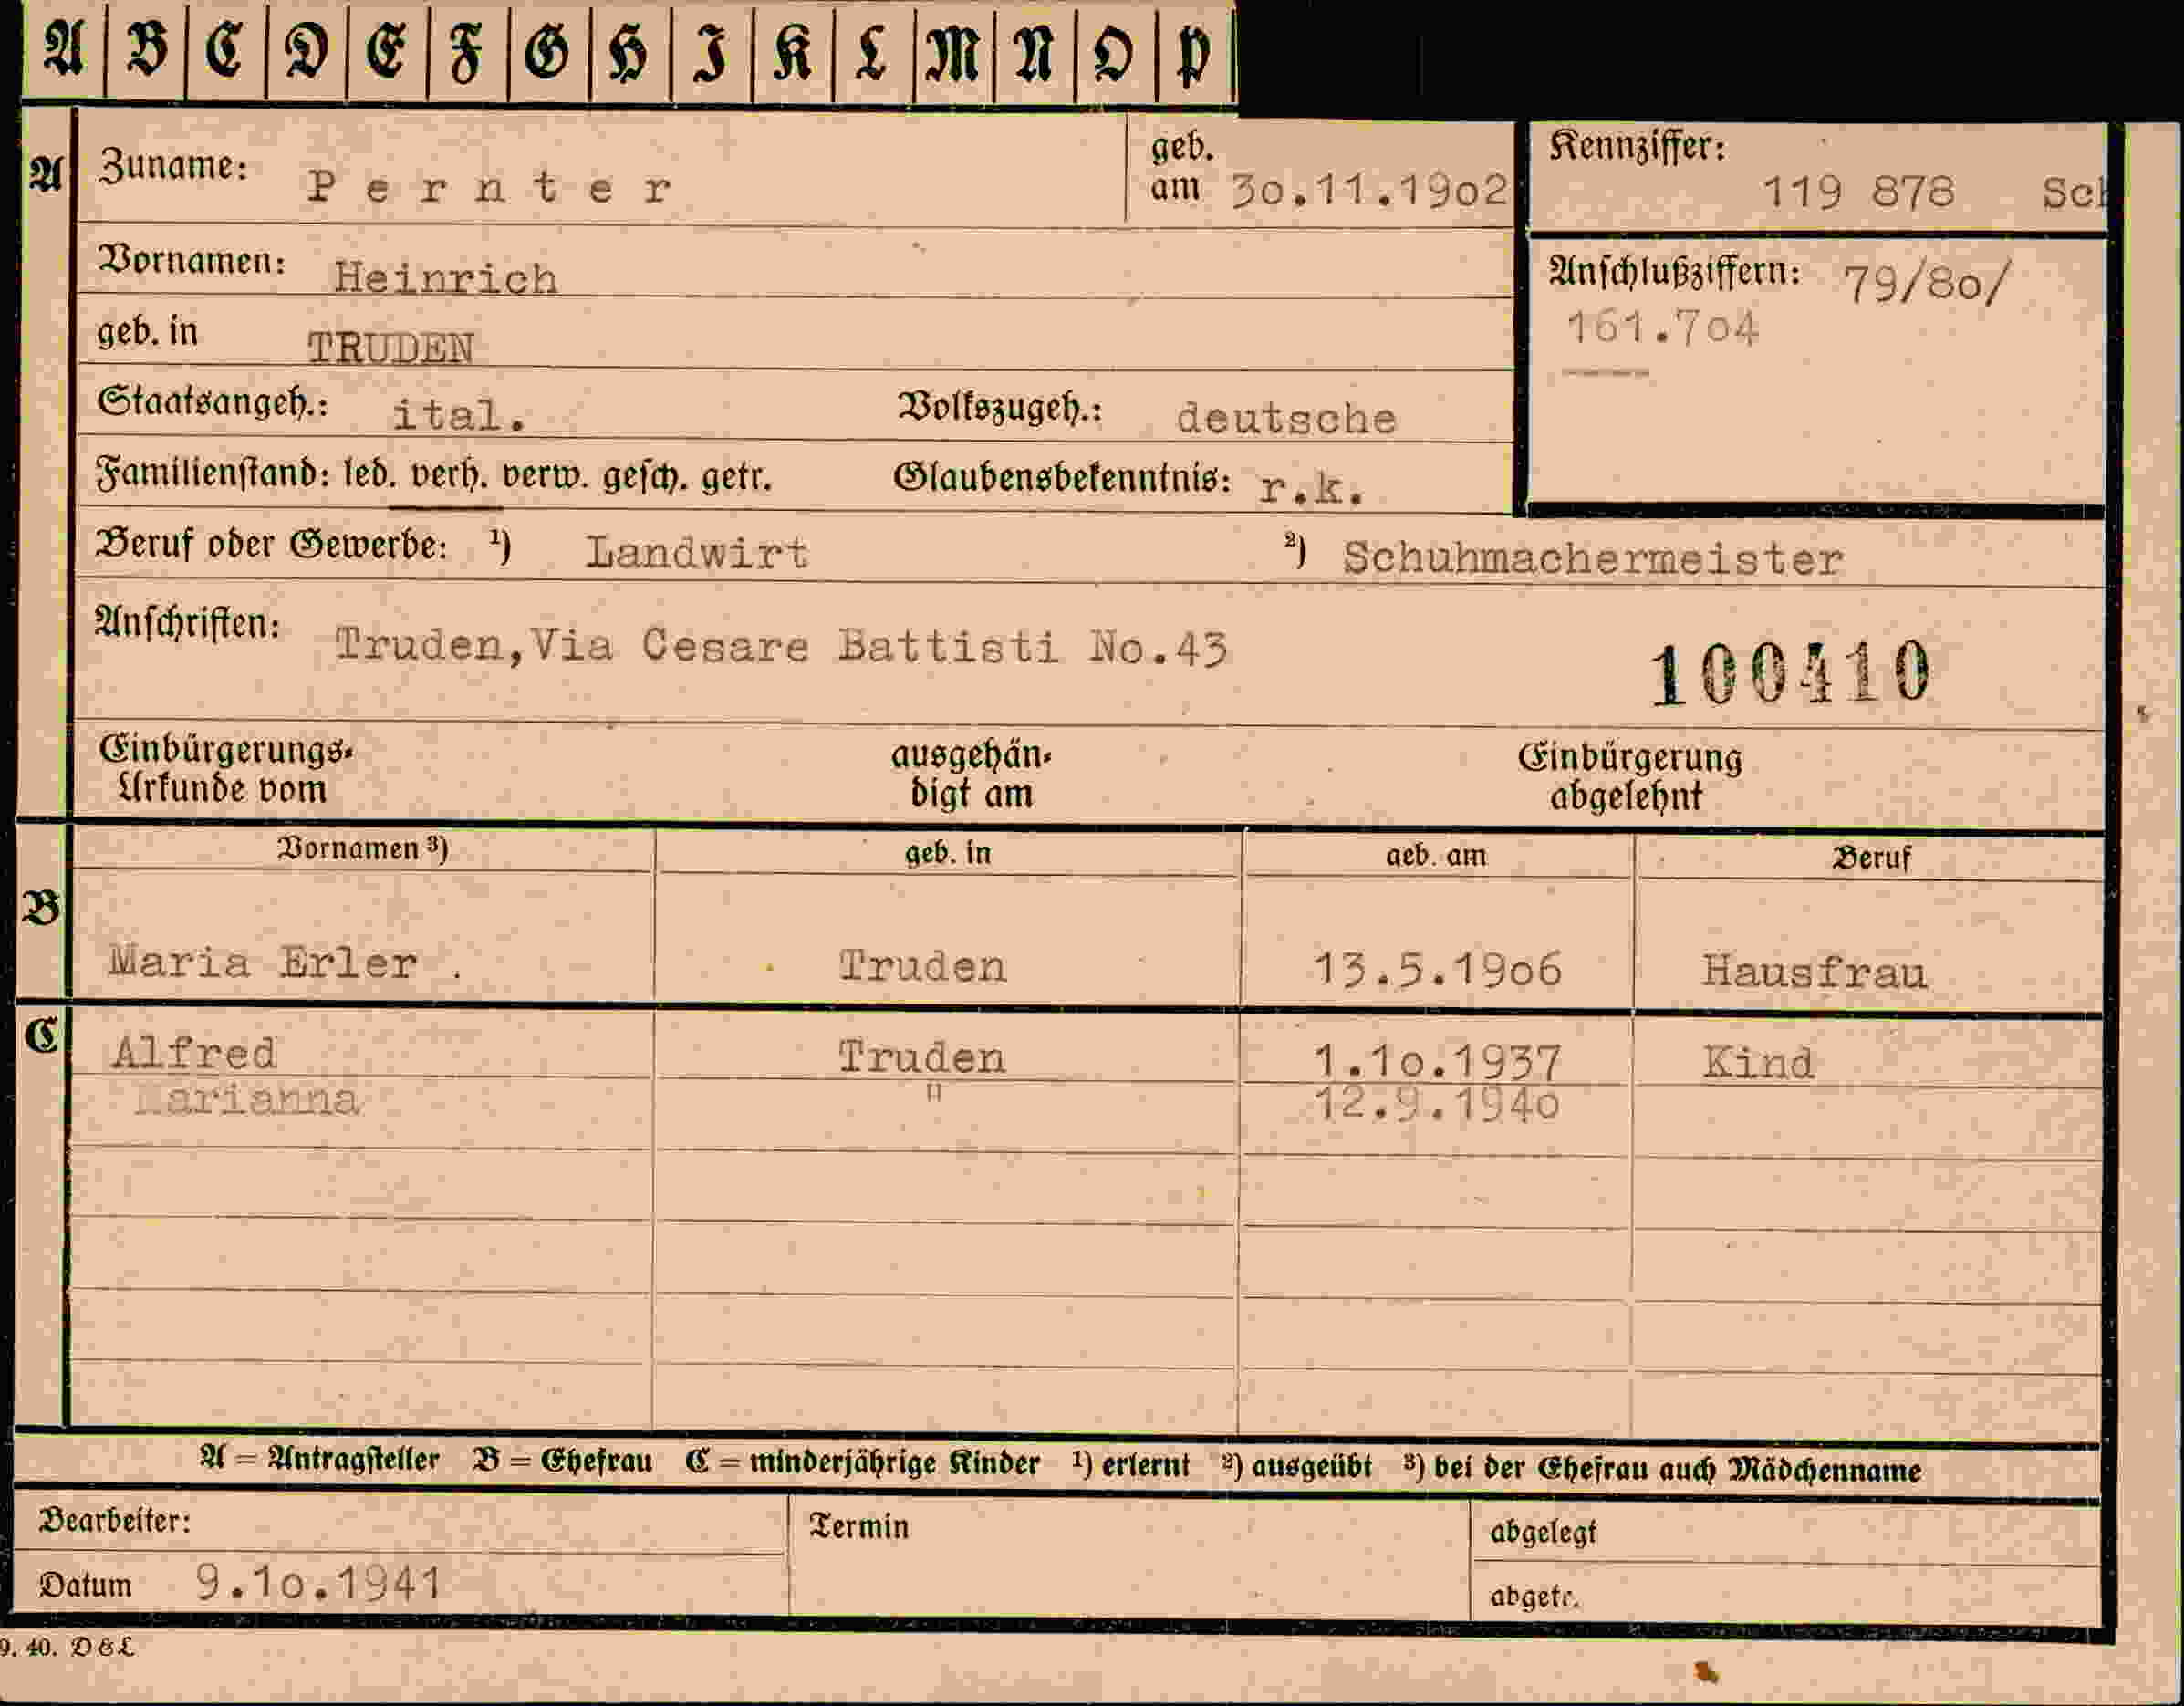 A B C D E F G H I K L M N O P
A Zuname: Pernter geb. am 30.11.1902 Kennziffer: 119 878 Sch
Vornamen: Heinrich Anschlußziffern: 79/80/
161.704
geb. in TRUDEN
Staatsangeh.: ital. Volkszugeh.: deutsche
Familienstand: led. verh. verw. gesch. getr. Glaubensbekenntnis: r.k.
Beruf oder Gewerbe: ¹) Landwirt ²) Schuhmachermeister
Anschriften: Truden,Via Cesare Battisti No.43
100410
Einbürgerungs- ausgehän- Einbürgerung
Urkunde vom digt am abgelehnt
Vornamen ³) geb. in geb. am Beruf
B
Maria Erler . Truden 13.5.1906 Hausfrau
C Alfred Truden 1.10.1937 Kind
Marianna " 12.9.1940
A = Antragsteller B = Ehefrau C = minderjährige Kinder ¹) erlernt ²) ausgeübt ³) bei der Ehefrau auch Mädchenname
Bearbeiter: Termin abgelegt
Datum 9.10.1941 abgetr.
9. 40. D & L